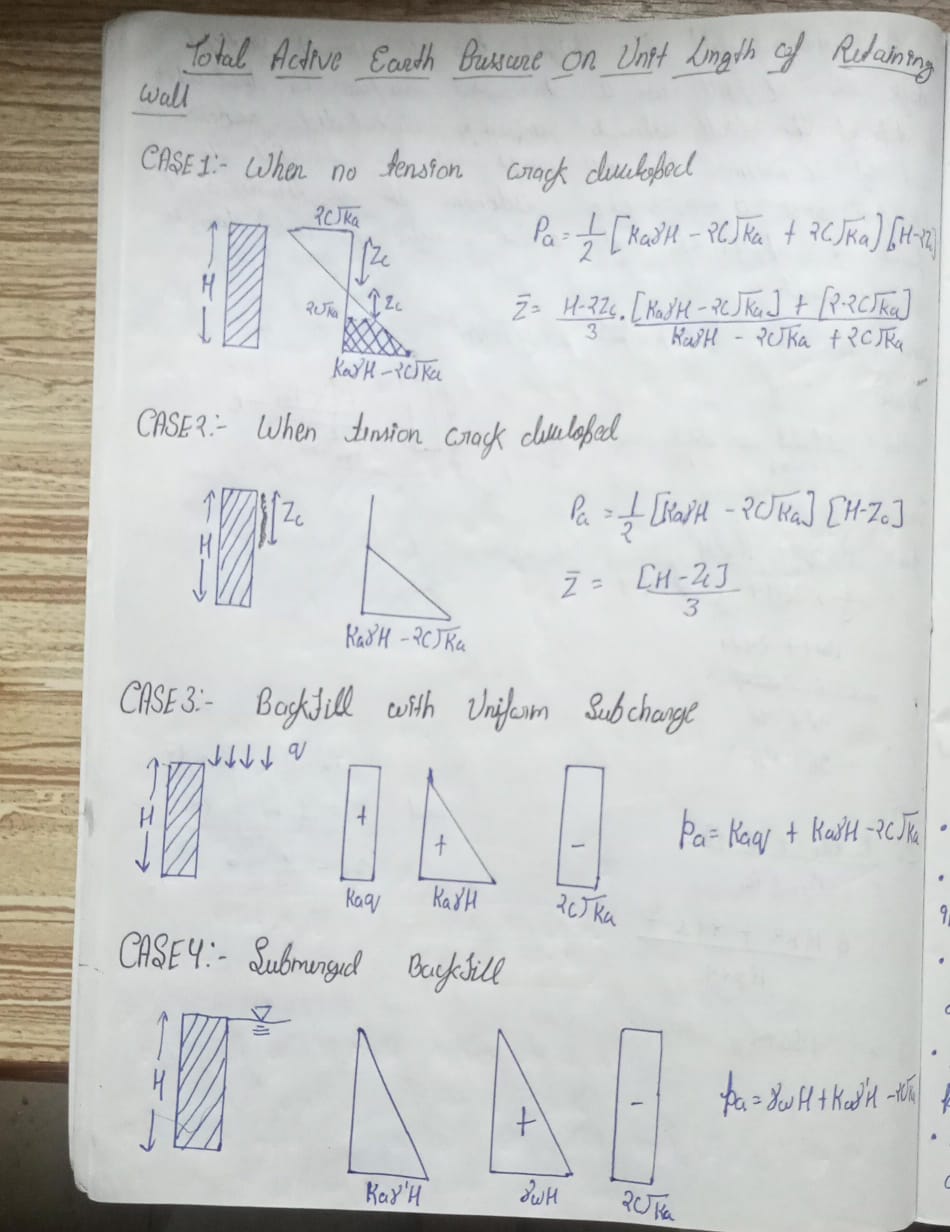 Total Active Earth Pressure on Unit Length of Retaining
Wall
CASE1:- When no tension crack developed
2C√Ka
Zc
H
2C√Ka
Zc
KaγH - 2C√Ka
Pa = 1/2 [KaγH - 2C√Ka + 2C√Ka) [H-2Zc]
z̄ = H-2Zc/3 . [KaγH - 2C√Ka] + [2·2C√Ka] / KaγH - 2C√Ka + 2C√Ka
CASE2:- When tension crack developed
H
Zc
KaγH - 2C√Ka
Pa = 1/2 [KaγH - 2C√Ka] [H-Zc]
z̄ = [H-Zc] / 3
CASE3:- Backfill with Uniform Subcharge
q
H
+
+
-
Kaq
KaγH
2C√Ka
pa = Kaq + KaγH - 2C√Ka
CASE4:- Submerged Backfill
H
+
-
Kaγ'H
γwH
2C√Ka
pa = γwH + Kaγ'H - 2C√Ka